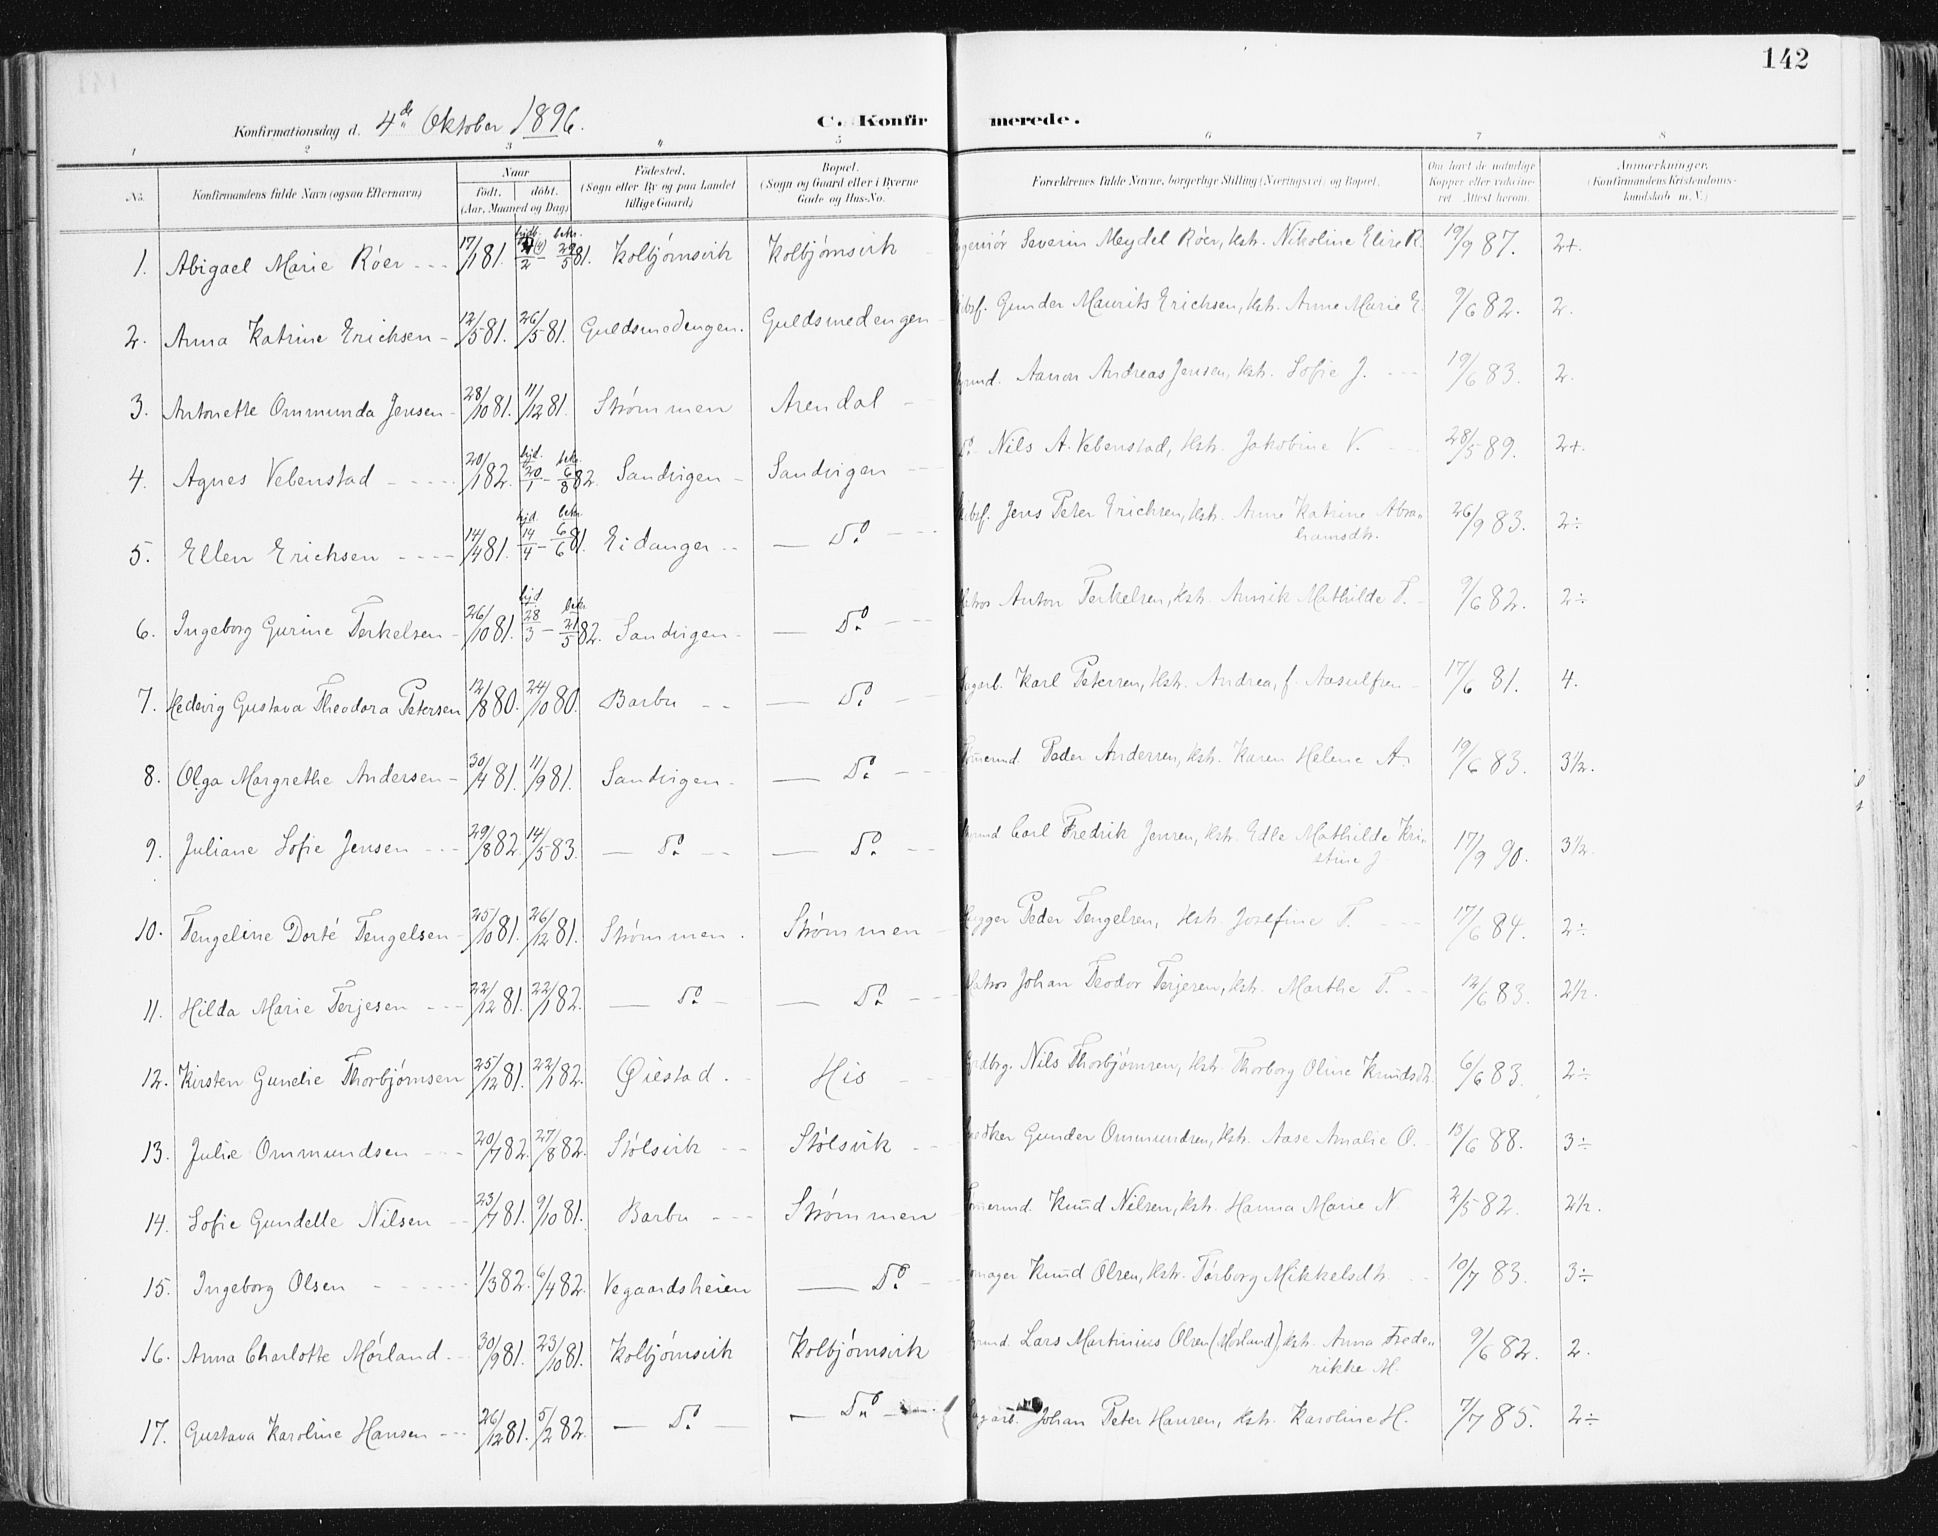 142
Konfirmationsdag d. 4de Oktober 1896.
C. Konfirmerede.
1 2 3 4 5 6 7 8
No. Konfirmandens fulde Navn (ogsaa Efternavn) Naar født. døbt. (Aar, Maaned og Dag) Fødested. (Sogn eller By og paa Landet tillige Gaard) Bopæl. (Sogn og Gaard eller i Byerne Gade og Hus-No. Forældrenes fulde Navne, borgerlige Stilling (Næringsvei) og Bopæl. Om havt de naturlige Kopper eller vaccineret. Attest herom. Anmærkninger. (Konfirmandens Kristendomskundskab m. V.)
1. Abigael Marie Röer 17/1 81. 29/5 81. Kolbjörnsvik Kolbjörnsvik Severin Meydel Röer, Kstr. Nikoline Elise R. 19/9 87. 2+.
2. Anna Katrine Erichsen 12/5 81. 26/5 81. Guldsmedengen. Guldsmedengen Gunder Maurits Erichsen, Kstr. Anne Marie E. 9/6 82. 2.
3. Antonette Ommunda Jensen 28/10 81. 11/12 81. Strømmen Arendal Aanon Andreas Jensen, kstr. Sofie J. 19/6 83. 2.
4. Agnes Vebenstad 20/1 82. hjd. 20/1 - bekr. 6/8 82. Sandvigen Sandvigen Do. Nils A. Vebenstad, kstr. Jakobine V. 28/5 89. 2+
5. Ellen Erichsen 14/4 81. hjd. 14/4 - bekr. 6/6 81. Eidanger Do. Jens Peter Erichsen, kstr. Anne Katrine Abrahamsdtr. 26/9 83. 2÷
6. Ingeborg Gurine Terkelsen 26/10 81. hjd 28/3 - bekr. 21/5 82. Sandvigen Do. Anton Terkelsen, kstr. Annik Mathilde T. 9/6 82. 2÷
7. Hedevig Gustava Theodora Petersen 12/8 80. 24/10 80. Barbu Do. Karl Petersen, kstr. Andrea, f. Aasulfsen 17/6 81. 4.
8. Olga Margrethe Andersen 30/4 81. 11/9 81. Sandvigen Do. Peder Andersen, kstr. Karen Helene A. 19/6 83. 3½.
9. Juliane Sofie Jensen 29/8 82. 14/5 83. Do. Do. Carl Fredrik Jensen, kstr. Edle Mathilde Kristine J. 17/9 90. 3½.
10. Tengeline Dorté Tengelsen 25/10 81. 26/12 81. Strømmen. Strømmen Peder Tengelsen, kstr. Josefine T. 17/6 84. 2÷
11. Hilda Marie Terjesen 22/12 81. 22/1 82. Do. Do. Johan Teodor Terjesen, kstr. Marthe T. 12/6 83. 2½.
12. Kirsten Gunelie Thorbjörnsen 25/12 81. 22/1 82. Øiestad. His Nils Thorbjörnsen, kstr. Thorborg Oline Knudsdtr. 6/6 83. 2÷
13. Julie Ommundsen 20/7 82. 27/8 82. Stölsvik Stölsvik Gunder Ommundsen, kstr. Aase Amalie O. 13/6 88. 3÷
14. Sofie Gundelle Nilsen 23/7 81. 9/10 81. Barbu Strømmen Knud Nilsen, kstr. Hanna Marie N. 2/5 82. 2½.
15. Ingeborg Olsen 1/3 82. 6/4 82. Vegaardsheien Do. Knud Olsen, kstr. Törborg Mikkelsdtr. 10/7 83. 3÷
16. Anna Charlotte Mörland 30/9 81. 23/10 81. Kolbjörnsvik Kolbjörnsvik Lars Martinius Olsen (Mörland), kstr. Anna Frederikke M. 9/6 82. 2.
17. Gustava Karoline Hansen 26/12 81. 5/2 82. Do. Do. Johan Peter Hansen, kstr. Karoline H. 7/7 85. 2÷